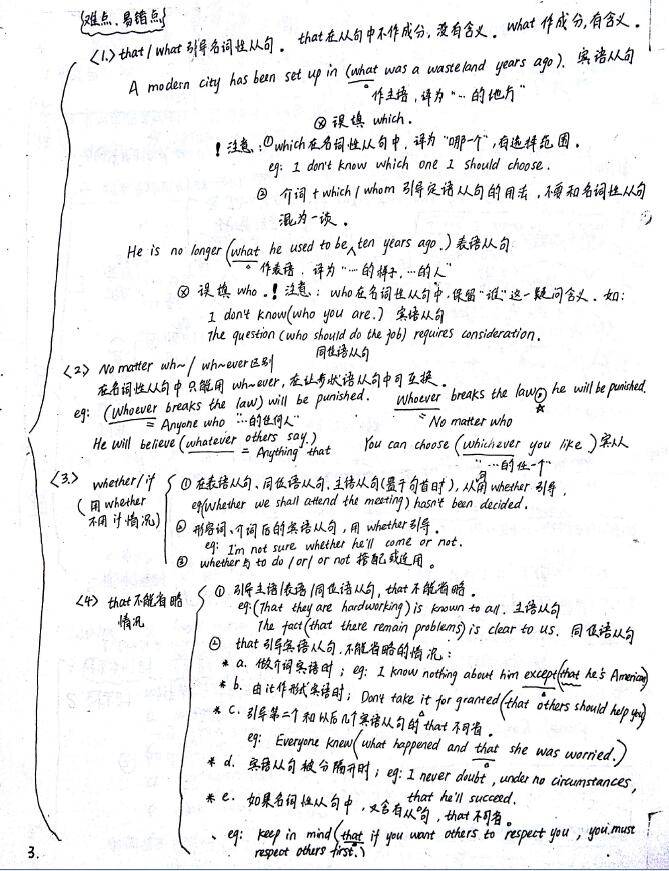 难点、易错点
<1.> that / what 引导名词性从句。 that在从句中不作成分,没有含义。 what 作成分,有含义。
A modern city has been set up in (what was a wasteland years ago). 宾语从句
作主语,译为“… 的地方”
⊗ 误填 which.
! 注意:① which在名词性从句中,译为“哪一个”,有选择范围。
eg: I don't know which one I should choose.
② 介词 + which / whom 引导定语从句的用法,不要和名词性从句
混为一谈。
He is no longer (what he used to be ^ ten years ago.) 表语从句
作表语,译为“… 的样子, … 的人”
⊗ 误填 who. ! 注意: who在名词性从句中,保留“谁”这一疑问含义. 如:
I don't know (who you are.) 宾语从句
The question (who should do the job) requires consideration.
同位语从句
<2> No matter wh~ / wh~ever区别
在名词性从句中只能用 wh~ever, 在让步状语从句中可互换.
eg: (Whoever breaks the law) will be punished. Whoever breaks the law, he will be punished.
= Anyone who “…的任何人” = No matter who
He will believe (whatever others say.) You can choose (whichever you like) 宾从
= Anything that “…的任一个”
<3.> whether / if ① 在表语从句、同位语从句、主语从句(置于句首时), 只用 whether 引导.
(用 whether eg (Whether we shall attend the meeting) hasn't been decided.
不用 if 情况) ② 形容词、介词后的宾语从句, 用 whether引导.
eg: I'm not sure whether he'll come or not.
③ whether与 to do / or / or not 搭配或连用。
<4> that 不能省略 ① 引导主语/表语/同位语从句, that 不能省略.
情况 eg: (That they are hardworking) is known to all. 主语从句
The fact (that there remain problems) is clear to us. 同位语从句
② that引导宾语从句, 不能省略的情况:
* a. 做介词宾语时; eg: I know nothing about him except (that he's American)
* b. 由it作形式宾语时; Don't take it for granted (that others should help you)
* c. 引导第二个和以后几个宾语从句的 that 不可省。
eg: Everyone knew (what happened and that she was worried.)
* d. 宾语从句被分隔开时; eg: I never doubt, under no circumstances,
that he'll succeed.
* e. 如果名词性从句中, 又含有从句, that 不可省。
eg: Keep in mind (that if you want others to respect you, you must
respect others first.)
3.